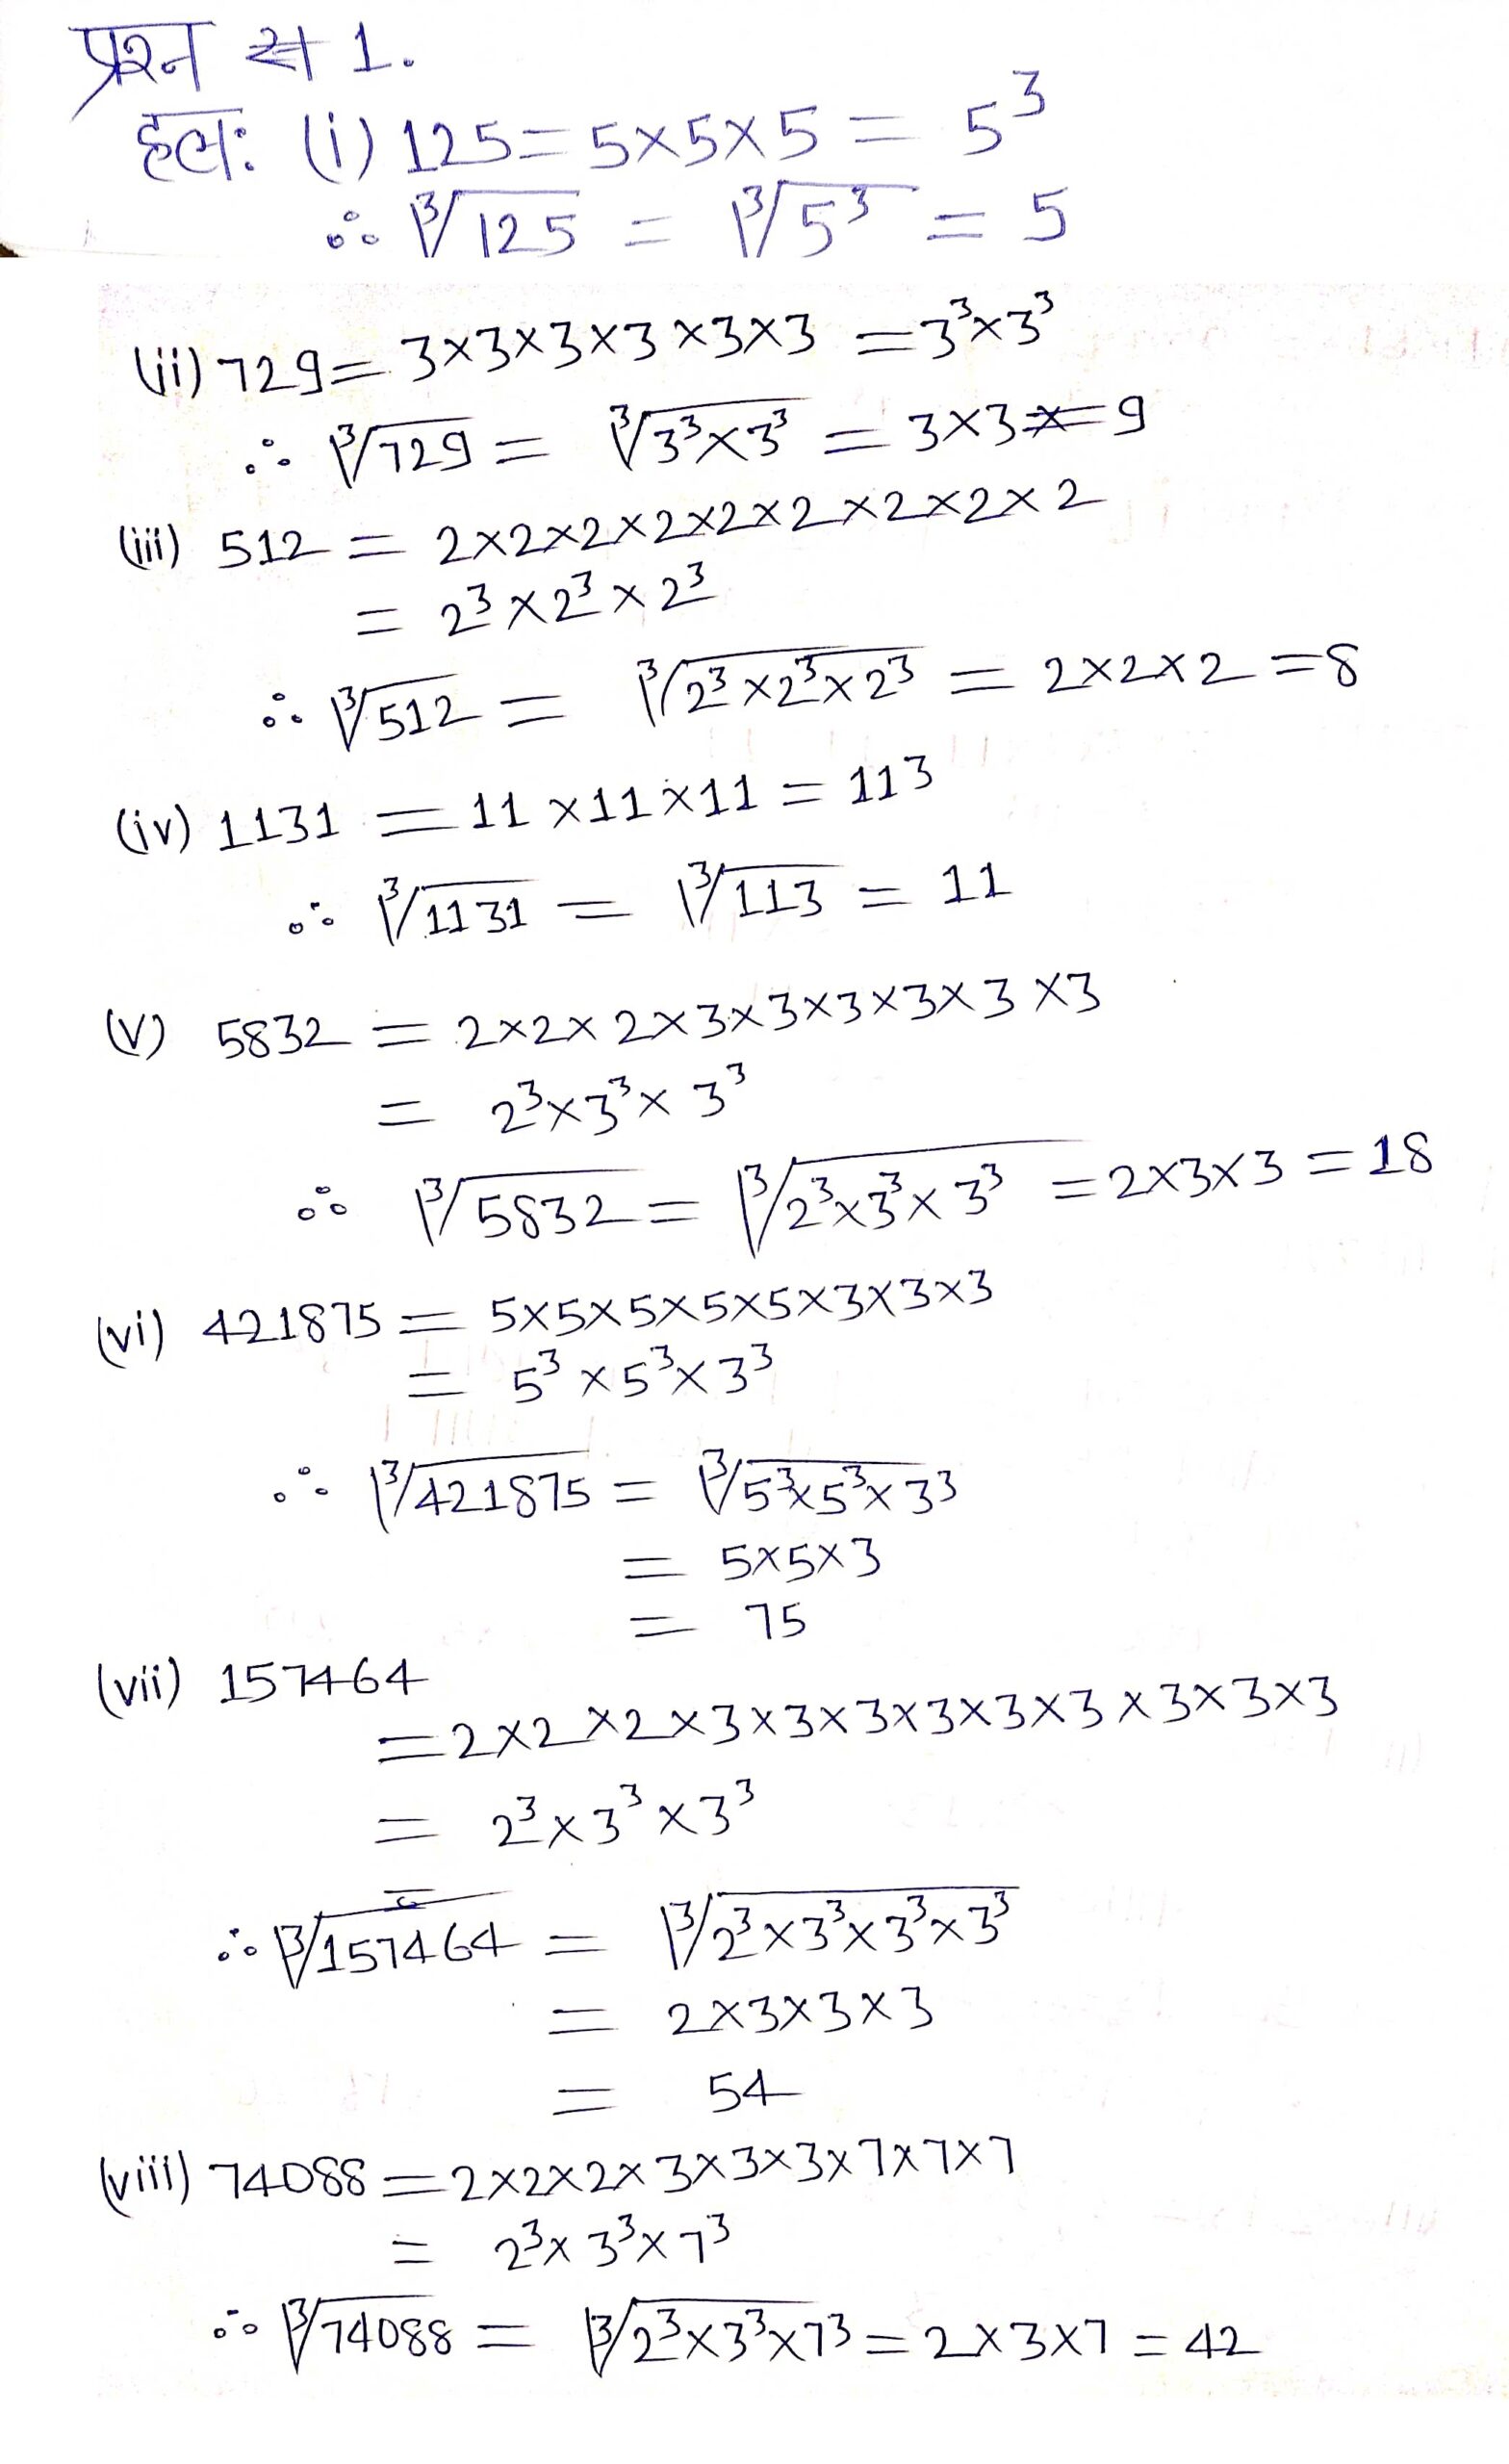 प्रश्न सं 1.
हलः (i) 125 = 5×5×5 = 5³
∴ ∛125 = ∛5³ = 5
(ii) 729 = 3×3×3×3×3×3 = 3³×3³
∴ ∛729 = ∛3³×3³ = 3×3 = 9
(iii) 512 = 2×2×2×2×2×2×2×2×2
= 2³×2³×2³
∴ ∛512 = ∛2³×2³×2³ = 2×2×2 = 8
(iv) 1131 = 11×11×11 = 113
∴ ∛1131 = ∛113 = 11
(v) 5832 = 2×2×2×3×3×3×3×3×3
= 2³×3³×3³
∴ ∛5832 = ∛2³×3³×3³ = 2×3×3 = 18
(vi) 421875 = 5×5×5×5×5×3×3×3
= 5³×5³×3³
∴ ∛421875 = ∛5³×5³×3³
= 5×5×3
= 75
(vii) 157464
= 2×2×2×3×3×3×3×3×3×3×3×3
= 2³×3³×3³
∴ ∛157464 = ∛2³×3³×3³×3³
= 2×3×3×3
= 54
(viii) 74088 = 2×2×2×3×3×3×7×7×7
= 2³×3³×7³
∴ ∛74088 = ∛2³×3³×7³ = 2×3×7 = 42